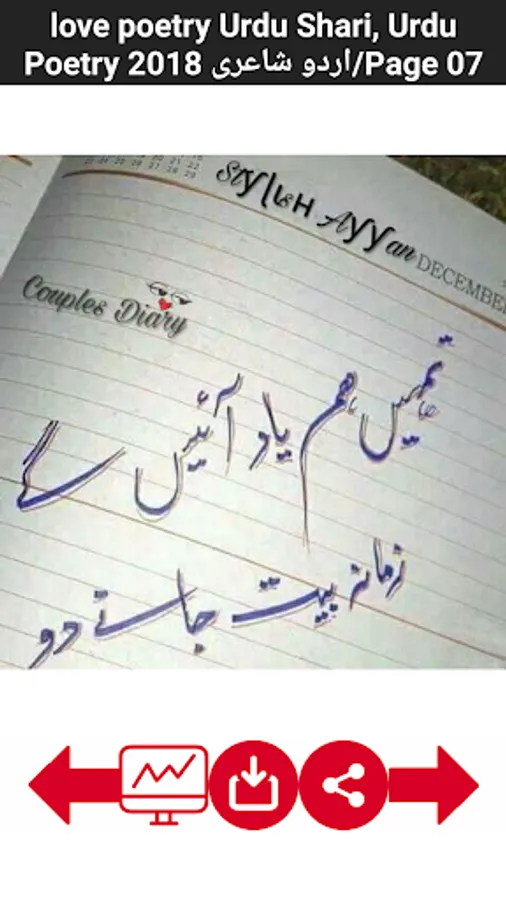 love poetry Urdu Shari, Urdu
Poetry 2018 اردو شاعری/Page 07
Stylish Ayyan
DECEMBER
Couples Diary
تمہیں ہم یاد آئیں گے
زمانہ بیت جانے دو